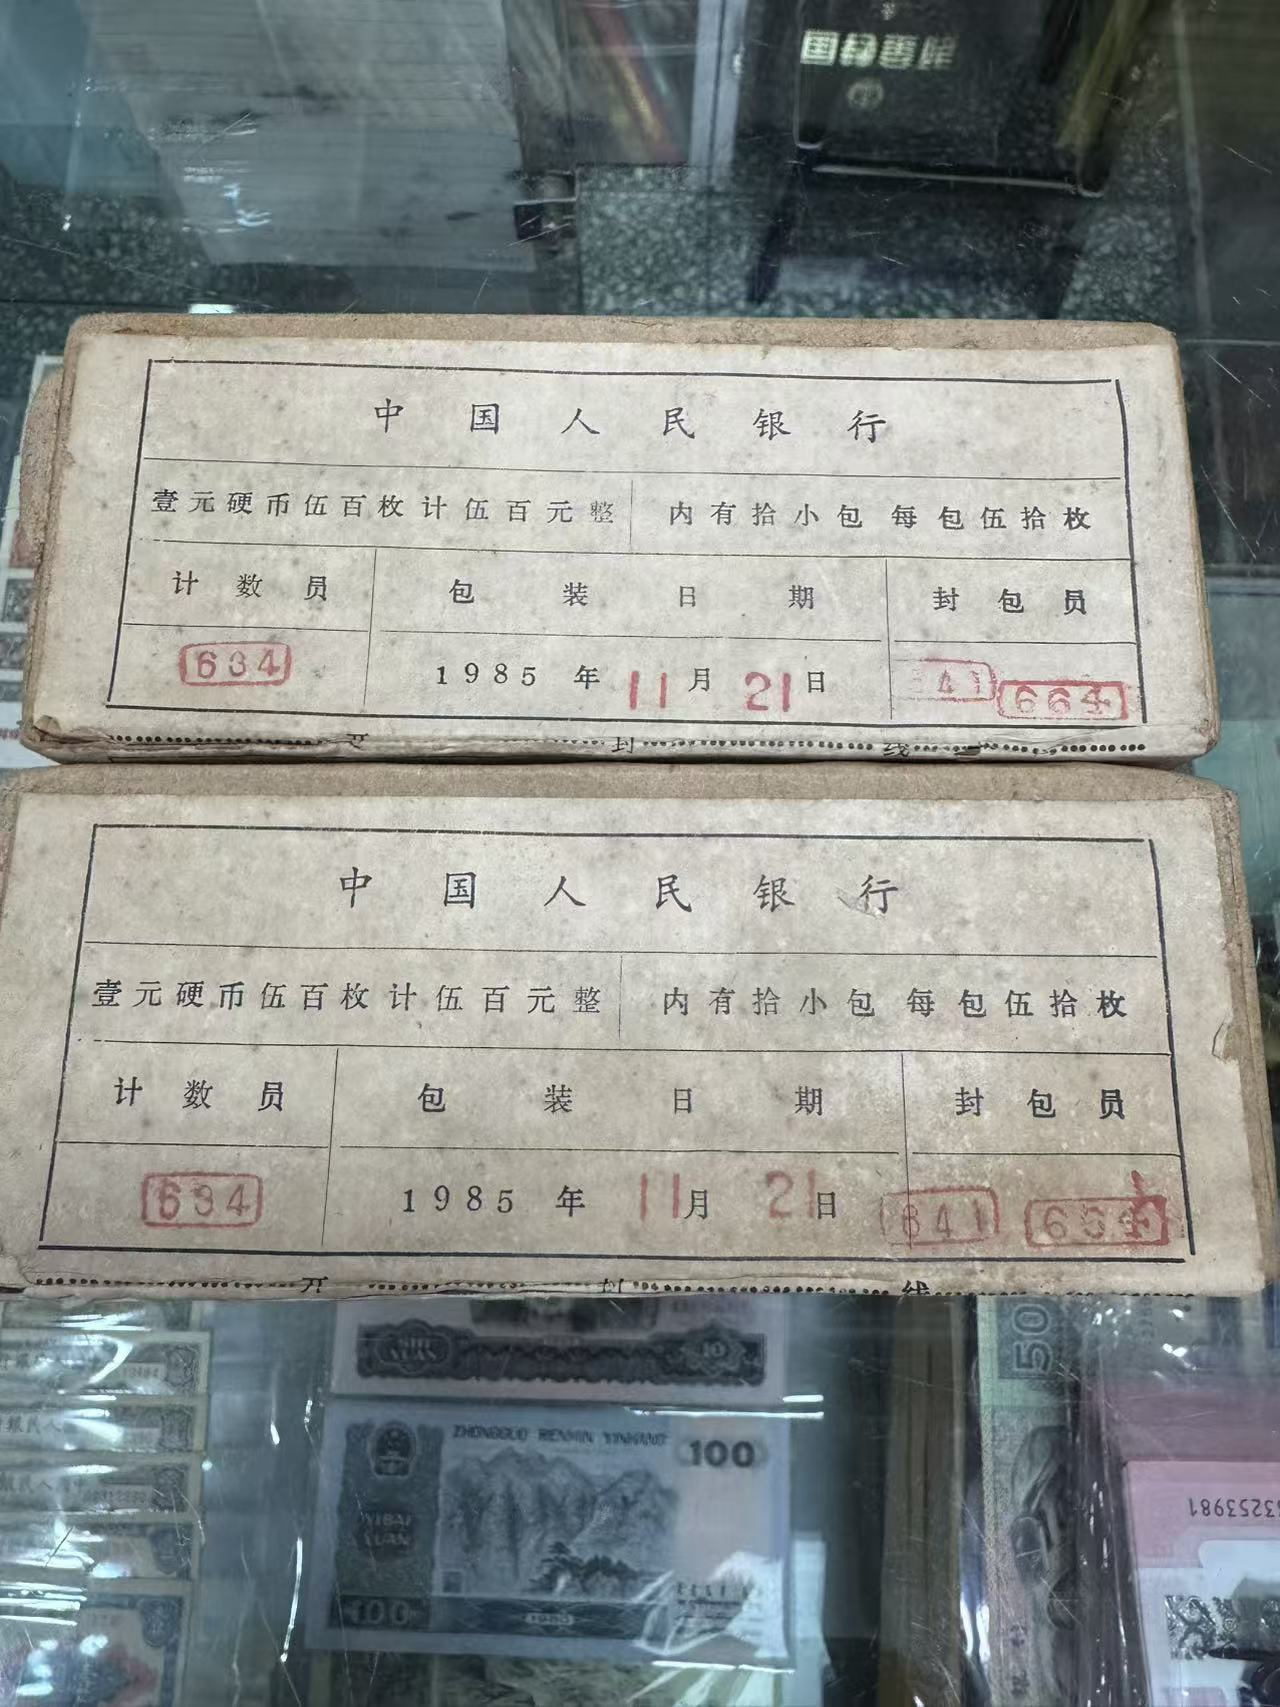 中国人民银行
壹元硬币伍百枚计伍百元整 内有拾小包 每包伍拾枚
计数员 包装日期 封包员
634 1985年11月21日 41 664
开封线
中国人民银行
壹元硬币伍百枚计伍百元整 内有拾小包 每包伍拾枚
计数员 包装日期 封包员
634 1985年11月21日 641 664
开封线
SHI YUAN 10
50
ZHONGGUO RENMIN YINHANG 100
YIBAI YUAN
100 1980
33253981